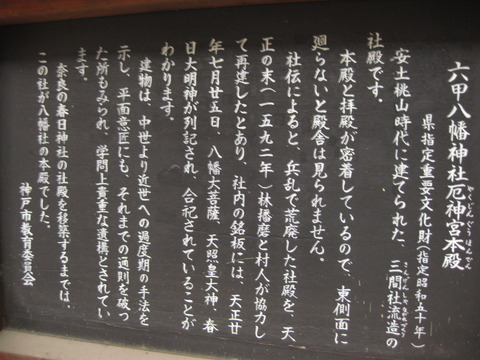 六甲八幡神社厄神宮本殿
やくじんぐうほんでん
県指定重要文化財(指定昭和五十年)
安土桃山時代に建てられた、三間社流造の
さんげんしゃながれづくり
社殿です。
本殿と拝殿が密着しているので、東側面に
廻らないと殿舎は見られません。
社伝によると、兵乱で荒廃した社殿を、天
正の末(一五九二年)林播磨と村人が協力し
て再建したとあり、社内の銘板には、天正廿
年七月廿五日、八幡大菩薩 天照皇大神、春
日大明神が列記され、合祀されていることが
わかります。
建物は、中世より近世への過度期の手法を
示し、平面意匠にも、それまでの通則を破っ
た所もみられ、学問上貴重な遺構とされてい
ます。
奈良の春日神社の社殿を移築するまでは、
この社が八幡社の本殿でした。
神戸市教育委員会